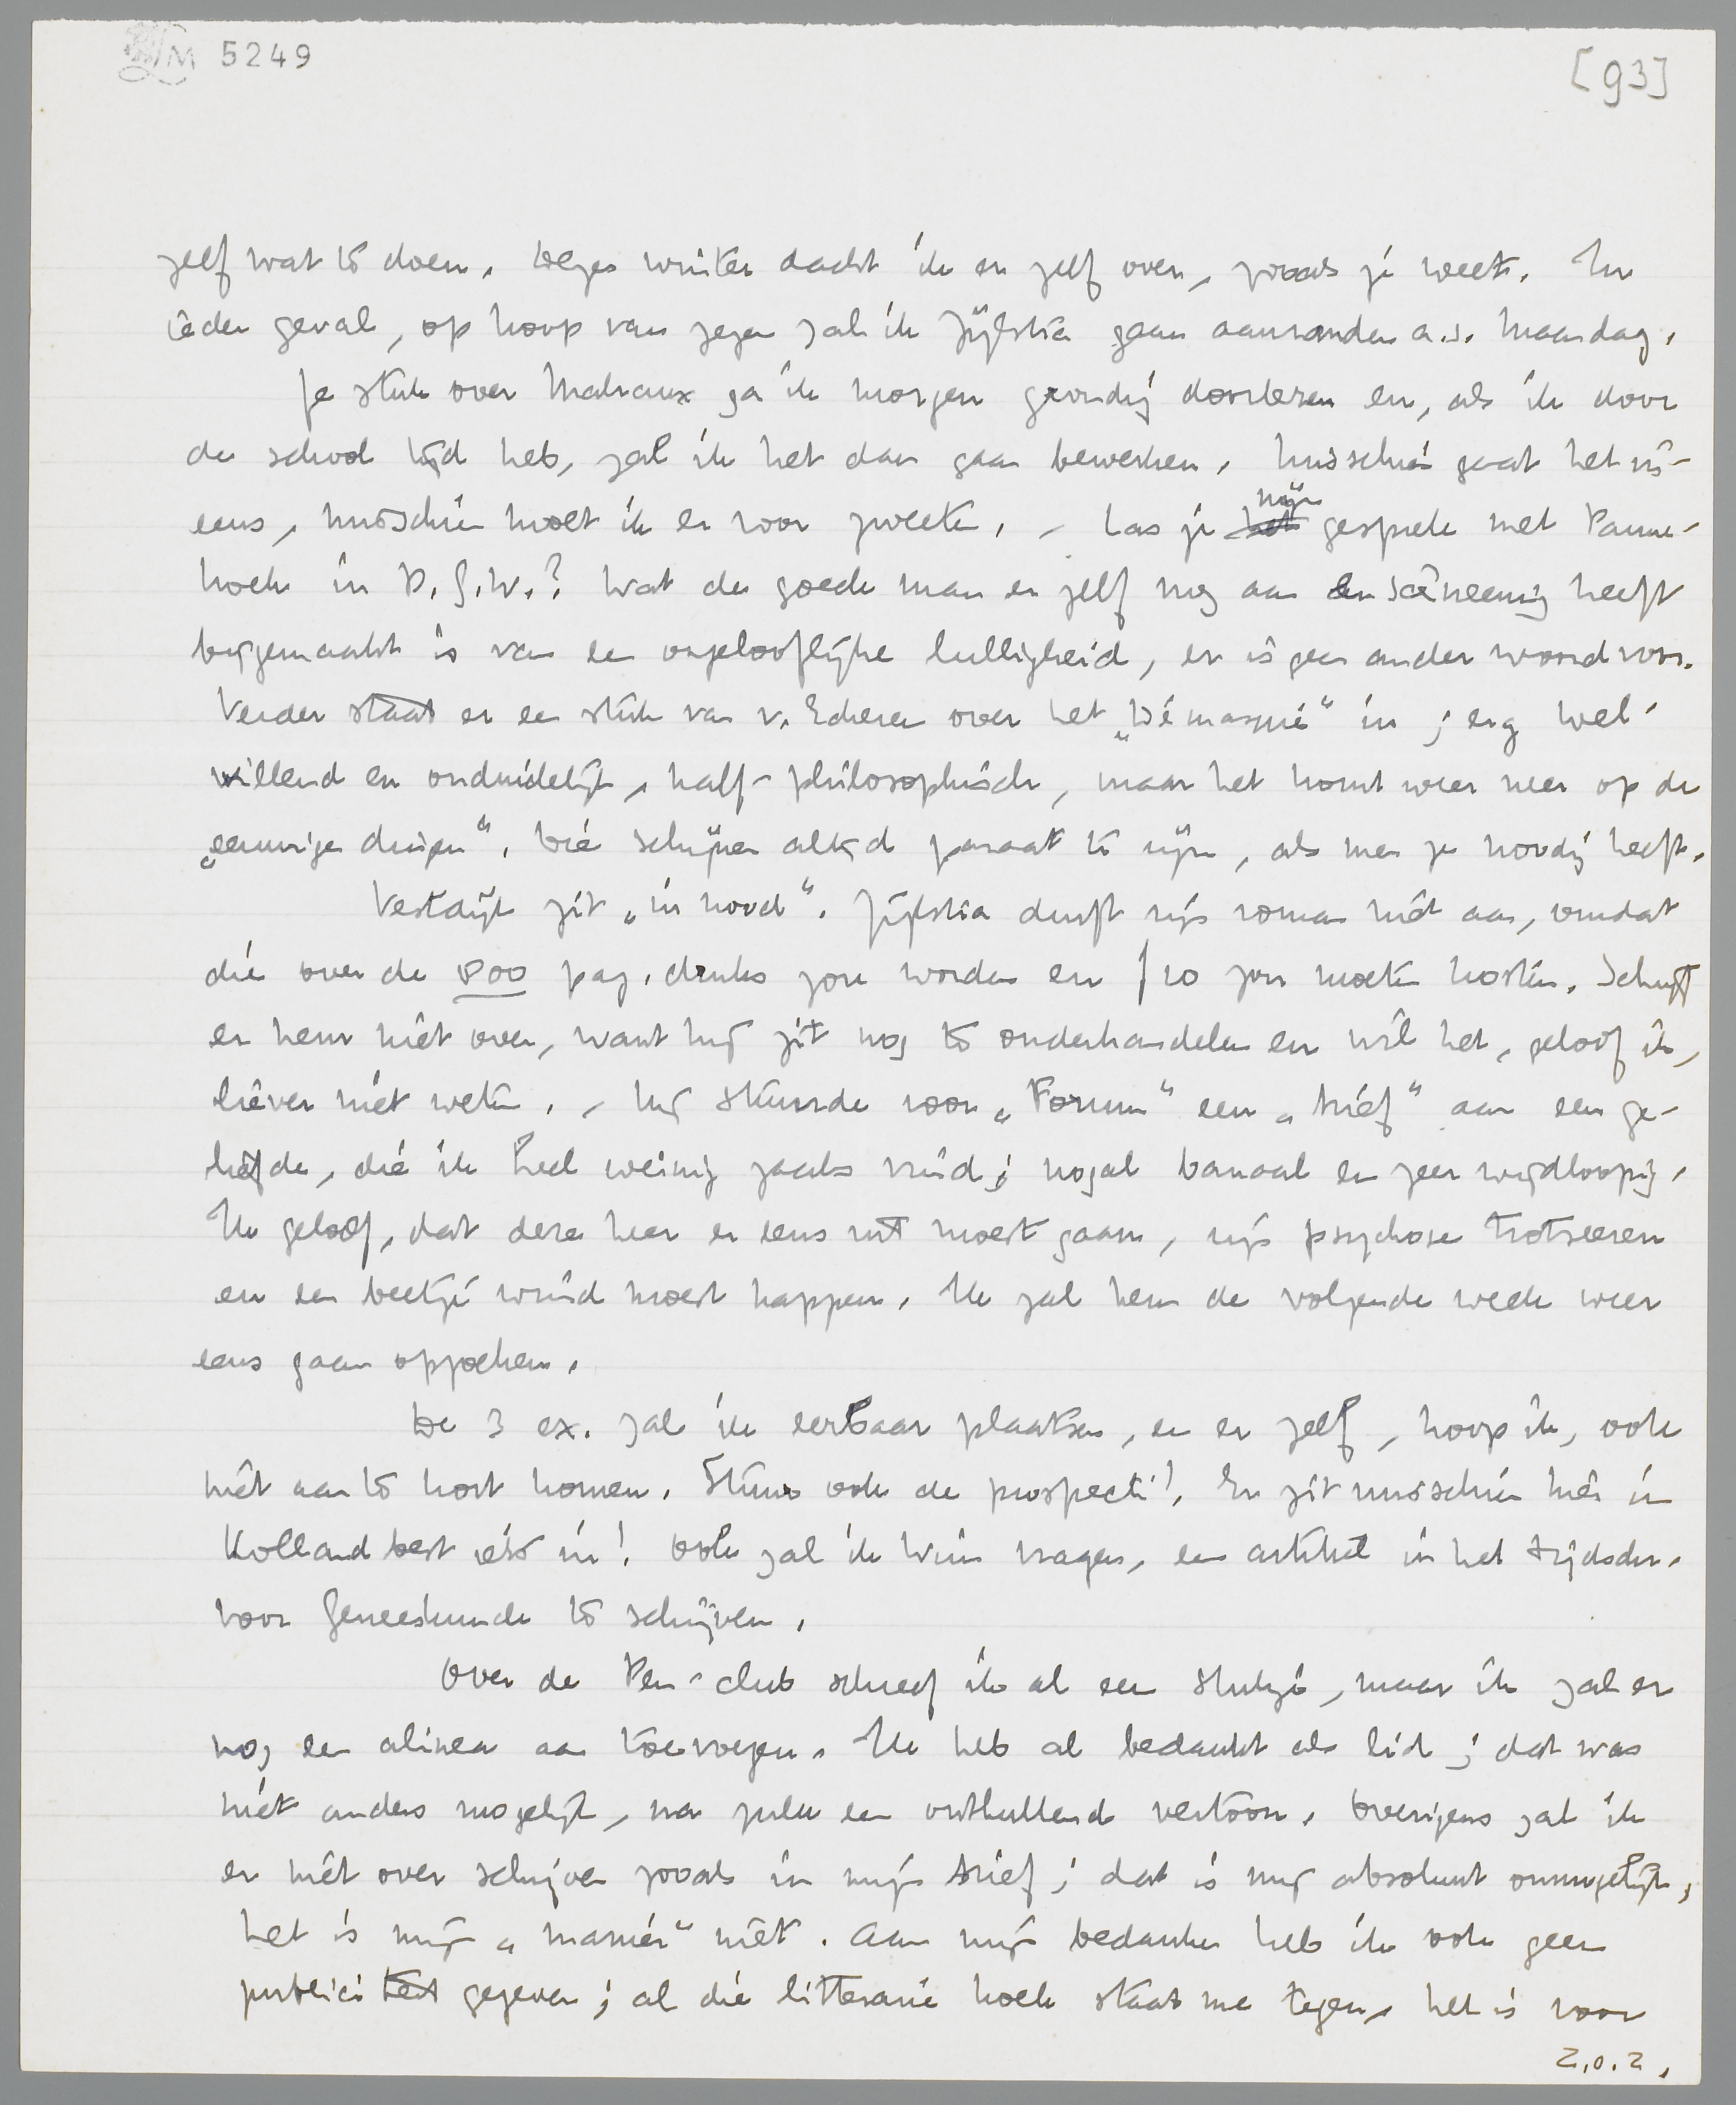 LM 5249
[93]
zelf wat te doen. Tegen winter dacht ik er zelf over, zooals je weet. In
ieder geval, op hoop van zegen zal ik Zijlstra gaan aanranden a.s. Maandag.
Je stuk over Malraux ga ik morgen grondig doorlezen en, als ik door
de school tijd heb, zal ik het dan gaan bewerken. Misschien gaat het in-
eens, misschien moet ik er voor zweeten. – Las je ~~het~~ mijn gesprek met Panne-
koek in D.G.W.? Wat de goede man er zelf nog aan en scèneering heeft
bijgemaakt is van een ongelooflijke lulligheid, er is geen ander woord voor.
Verder staat er een stuk van v. Eckeren over het „Démasqué” in; erg wel-
willend en onduidelijk, half-philosophisch, maar het komt weer neer op de
„eeuwige dingen”. Die schijnen altijd paraat te zijn, als men ze noodig heeft.
Vestdijk zit „in nood”. Zijlstra durft zijn roman niet aan, omdat
die over de 800 pag. druks zou worden en ƒ 10 zou moeten kosten. Schrijf
er hem niet over, want hij zit nog te onderhandelen en wil het, geloof ik,
liever niet weten. – Hij stuurde voor „Forum” een „brief” aan een ge-
liefde, die ik heel weinig zaaks vind; nogal banaal en zeer wijdloopig.
Ik geloof, dat deze heer er eens uit moest gaan, zijn psychose trotseeren
en een beetje wind moest happen. Ik zal hem de volgende week weer
eens gaan opzoeken.
De 3 ex. zal ik eerbaar plaatsen, en er zelf, hoop ik, ook
niet aan te kort komen. Stuur ook de prospecti! Er zit misschien hier in
Holland best iets in! Ook zal ik Wim vragen, een artikel in het Tijdschr.
voor Geneeskunde te schrijven.
Over de Pen-club schreef ik al een stukje, maar ik zal er
nog een alinea aan toevoegen. Ik heb al bedankt als lid; dat was
niet anders mogelijk, na zulk een onthullend vertoon. Overigens zal ik
er niet over schrijven zooals in mijn brief; dat is mij absoluut onmogelijk,
het is mijn „manier” niet. Aan mijn bedanken heb ik ook geen
publiciteit gegeven; al die litteraire koek staat me tegen, het is voor
z.o.z.